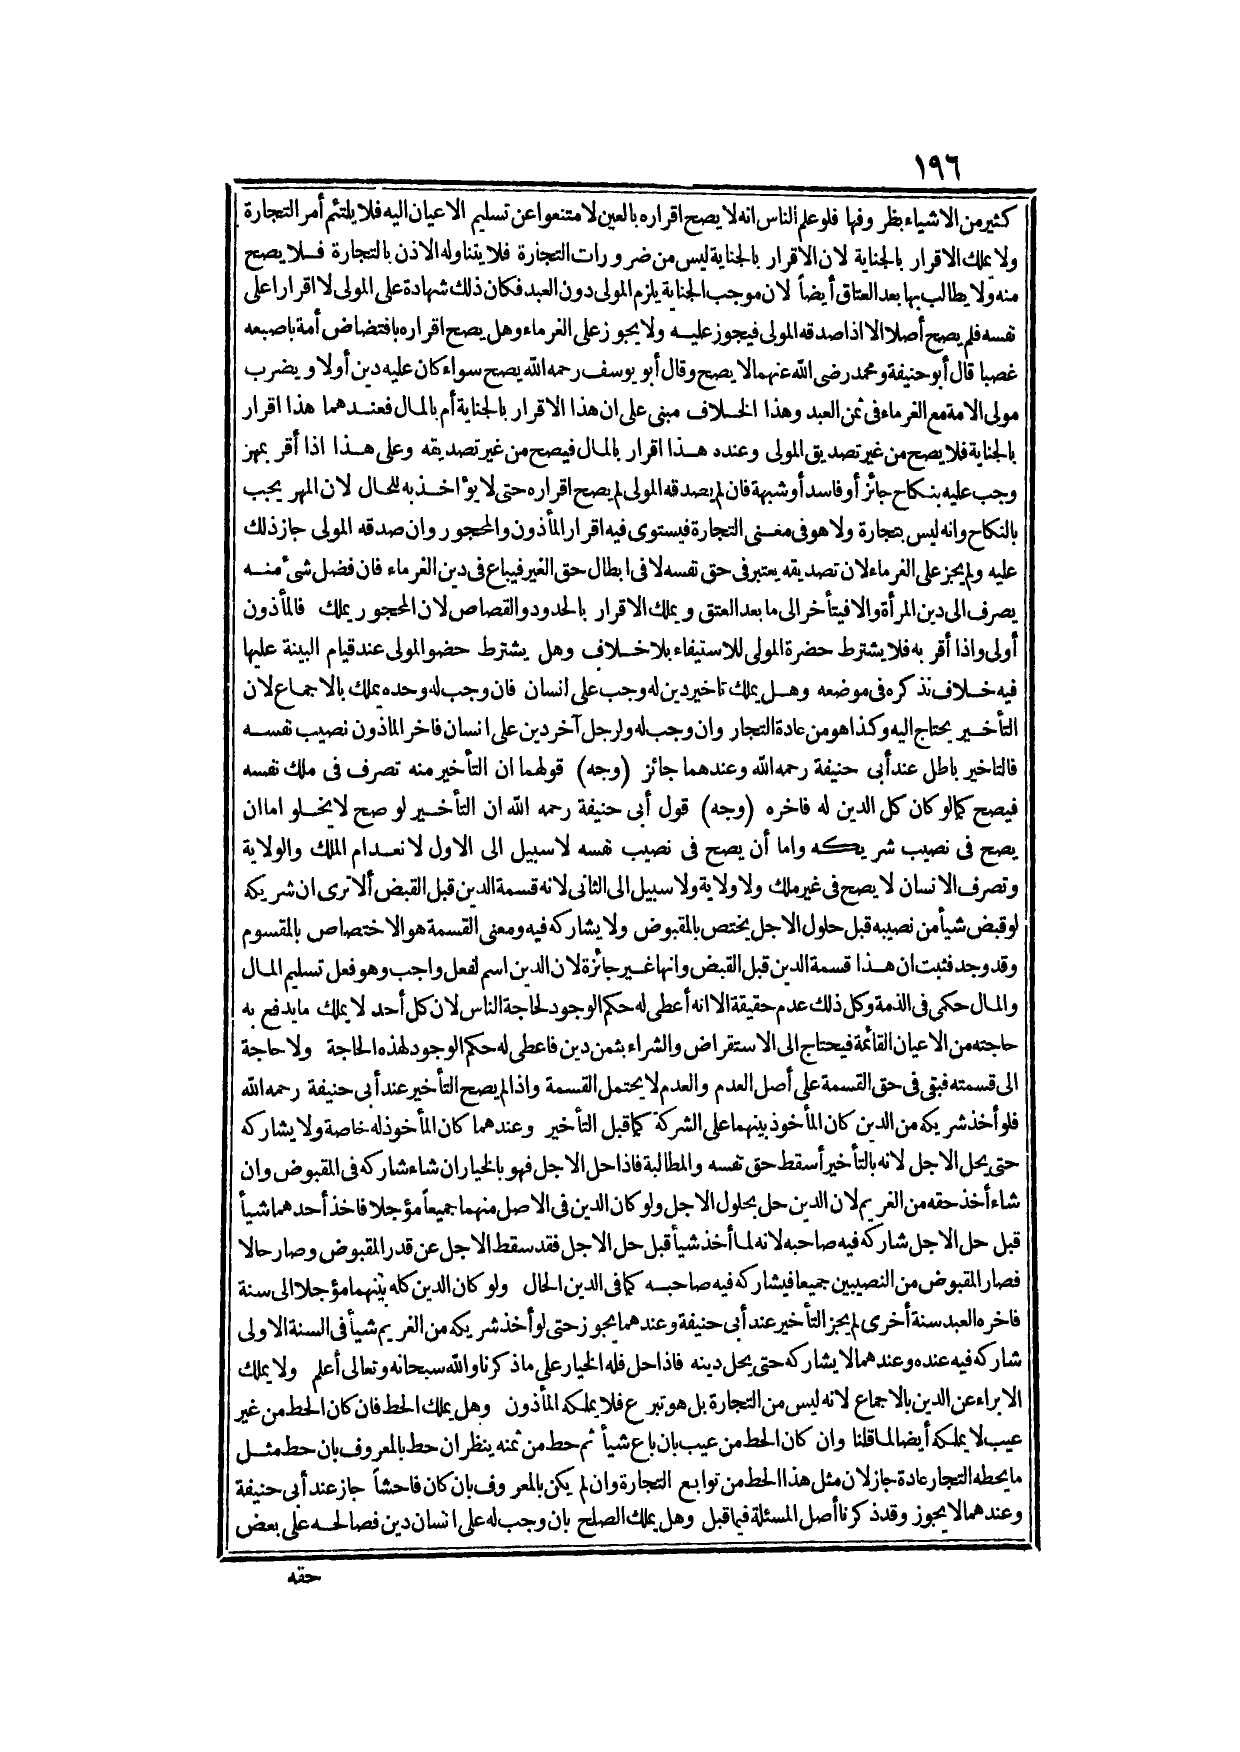 ١٩٦
كثير من الاشياء بظروفها فلو علم الناس انه لا يصح اقراره بالعين لامتنعوا عن تسليم الاعيان اليه فلا يلتئم أمر التجارة
ولا يملك الاقرار بالجناية لان الاقرار بالجناية ليس من ضرورات التجارة فلا يتناوله الاذن بالتجارة فلا يصح
منه ولا يطالب بها بعد العتاق أيضاً لان موجب الجناية يلزم المولى دون العبد فكان ذلك شهادة على المولى لا اقرارا على
نفسه فلم يصح أصلا الا اذا صدقه المولى فيجوز عليه ولا يجوز على الغرماء وهل يصح اقراره بافتضاض أمة باصبعه
غصبا قال أبو حنيفة ومحمد رضى الله عنهما لا يصح وقال أبو يوسف رحمه الله يصح سواء كان عليه دين أولا ويضرب
مولى الامة مع الغرماء فى ثمن العبد وهذا الخلاف مبنى على ان هذا الاقرار بالجناية أم بالمال فعندهما هذا اقرار
بالجناية فلا يصح من غير تصديق المولى وعنده هذا اقرار بالمال فيصح من غير تصديقه وعلى هذا اذا أقر بمهر
وجب عليه بنكاح جائز أو فاسد أو شبهة فان لم يصدقه المولى لم يصح اقراره حتى لا يؤاخذ به للحال لان المهر يجب
بالنكاح وانه ليس بتجارة ولا هو فى معنى التجارة فيستوى فيه اقرار المأذون والمحجور وان صدقه المولى جاز ذلك
عليه ولم يجز على الغرماء لان تصديقه يعتبر فى حق نفسه لا فى ابطال حق الغير فيباع فى دين الغرماء فان فضل شئ منه
يصرف الى دين المرأة والا فيتأخر الى ما بعد العتق ويملك الاقرار بالحدود والقصاص لان المحجور يملك فالمأذون
أولى واذا أقر به فلا يشترط حضرة المولى للاستيفاء بلا خلاف وهل يشترط حضو المولى عند قيام البينة عليها
فيه خلاف نذكره فى موضعه وهل يملك تاخير دين له وجب على انسان فان وجب له وحده يملك بالاجماع لان
التأخير يحتاج اليه وكذا هو من عادة التجار وان وجب له ولرجل آخر دين على انسان فاخر الماذون نصيب نفسه
فالتاخير باطل عند أبى حنيفة رحمه الله وعندهما جائز (وجه) قولهما ان التأخير منه تصرف فى ملك نفسه
فيصح كما لو كان كل الدين له فاخره (وجه) قول أبى حنيفة رحمه الله ان التأخير لو صح لا يخلو اما ان
يصح فى نصيب شريكه واما أن يصح فى نصيب نفسه لا سبيل الى الاول لانعدام الملك والولاية
وتصرف الانسان لا يصح فى غير ملك ولا ولاية ولا سبيل الى الثانى لانه قسمة الدين قبل القبض ألا ترى ان شريكه
لو قبض شيأ من نصيبه قبل حلول الاجل يختص بالمقبوض ولا يشاركه فيه ومعنى القسمة هو الاختصاص بالمقسوم
وقد وجد فثبت ان هذا قسمة الدين قبل القبض وانها غير جائزة لان الدين اسم لفعل واجب وهو فعل تسليم المال
والمال حكمى فى الذمة وكل ذلك عدم حقيقة الا انه أعطى له حكم الوجود لحاجة الناس لان كل أحد لا يملك مايدفع به
حاجته من الاعيان القائمة فيحتاج الى الاستقراض والشراء بثمن دين فاعطى له حكم الوجود لهذه الحاجة ولا حاجة
الى قسمته فبقى فى حق القسمة على أصل العدم والعدم لا يحتمل القسمة واذا لم يصح التأخير عند أبى حنيفة رحمه الله
فلو أخذ شريكه من الدين كان المأخوذ بينهما على الشركة كما قبل التأخير وعندهما كان المأخوذ له خاصة ولا يشاركه
حتى يحل الاجل لانه بالتأخير أسقط حق نفسه والمطالبة فاذا حل الاجل فهو بالخيار ان شاء شاركه فى المقبوض وان
شاء أخذ حقه من الغريم لان الدين حل بحلول الاجل ولو كان الدين فى الاصل منهما جميعاً مؤجلا فاخذ أحدهما شيأ
قبل حل الاجل شاركه فيه صاحبه لانه لما أخذ شيأ قبل حل الاجل فقد سقط الاجل عن قدر المقبوض وصار حالا
فصار المقبوض من النصيبين جميعا فيشاركه فيه صاحبه كما فى الدين الحال ولو كان الدين كله بينهما مؤجلا الى سنة
فاخره العبد سنة أخرى لم يجز التأخير عند أبى حنيفة وعندهما يجوز حتى لو أخذ شريكه من الغريم شيأ فى السنة الاولى
شاركه فيه عنده وعندهما لا يشاركه حتى يحل دينه فاذا حل فله الخيار على ما ذكرنا والله سبحانه وتعالى أعلم ولا يملك
الابراء عن الدين بالاجماع لانه ليس من التجارة بل هو تبرع فلا يملكه المأذون وهل يملك الحط فان كان الحط من غير
عيب لا يملكه أيضا لما قلنا وان كان الحط من عيب بان باع شيأ ثم حط من ثمنه ينظر ان حط بالمعروف بان حط مثل
ما يحطه التجار عادة جاز لان مثل هذا الحط من توابع التجارة وان لم يكن بالمعروف بان كان فاحشاً جاز عند أبى حنيفة
وعندهما لا يجوز وقد ذكرنا أصل المسئلة فيما قبل وهل يملك الصلح بان وجب له على انسان دين فصالحه على بعض
حقه